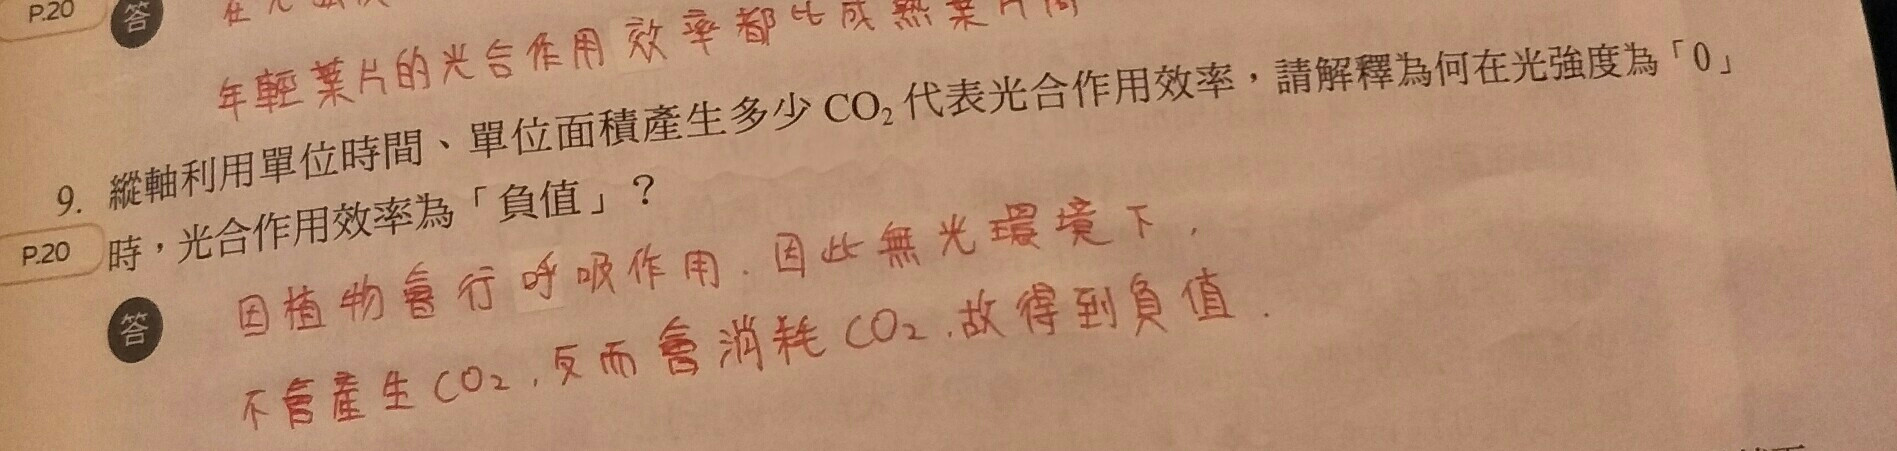 P.20
答
年輕葉片的光合作用效率都比成熟葉片高
9. 縱軸利用單位時間、單位面積產生多少 CO₂ 代表光合作用效率，請解釋為何在光強度為「0」
P.20 時，光合作用效率為「負值」？
答 因植物會行呼吸作用.因此無光環境下,
不會產生CO₂,反而會消耗CO₂.故得到負值.